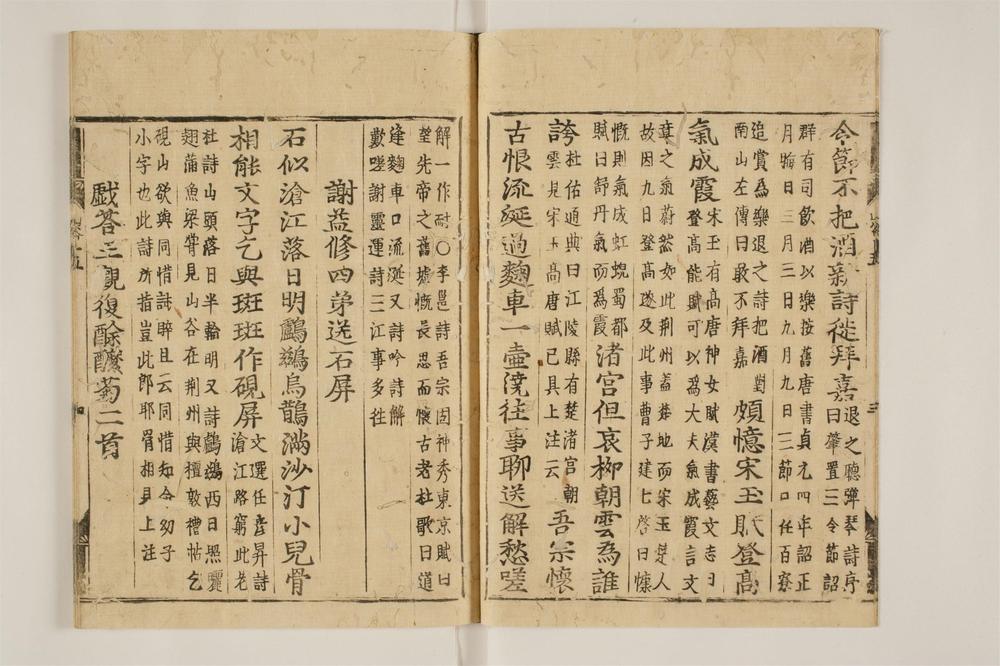 令節不把酒新詩從拜嘉退之聽彈琴詩序
曰肇置三令節詔
群有司飲酒以樂按舊唐書貞元四年詔正
月晦日三月三日九月九日三節日任百寮
追賞為樂退之詩把酒對
南山左傳曰敢不拜嘉
頗憶宋玉賦登高
氣成霞宋玉有高唐神女賦漢書藝文志曰
登高能賦可以為大夫氣成霞言文
章之氣蔚然如此荆州蓋楚地而宋玉楚人
故因九日登高遂及此事曹子建七啓曰慷
慨則氣成虹蜺蜀都
賦曰舒丹氣而為霞
渚宮但哀柳朝雲為誰
誇杜佑通典曰江陵縣有楚渚宮朝
雲見宋玉高唐賦已具上注云
吾宗懷
古恨流涎過麴車一壺澆往事聊送解愁嗟
解一作耐○李邕詩吾宗固神秀東京賦曰
望先帝之舊墟慨長思而懷古老杜歌曰道
逢麴車口流涎又詩吟詩解
歎嗟謝靈運詩三江事多往
謝益修四弟送石屏
石似滄江落日明鸕鷀烏鵲滿沙汀小兒骨
相能文字乞與斑斑作硯屏文選任彥昇詩
滄江路窮此老
杜詩山頭落日半輪明又詩鸕鷀西日照曬
翅蒲魚梁嘗見山谷在荆州與檀敦禮帖乞
硯山欲與同惜且云同惜知令幼子
小字也此詩所指豈此郎耶骨相見上注
戲答王觀復酴醿菊二首